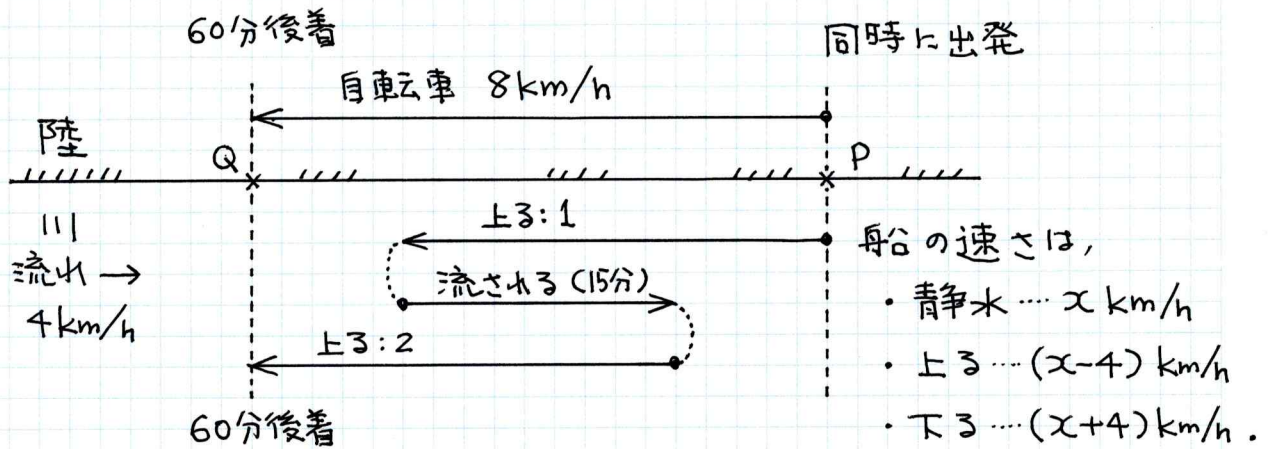 60分後着
同時に出発
自転車 8km/h
陸
Q
P
川
流れ →
4km/h
上る:1
流される(15分)
上る:2
60分後着
船の速さは,
・静水…x km/h
・上る…(x-4) km/h
・下る…(x+4) km/h.